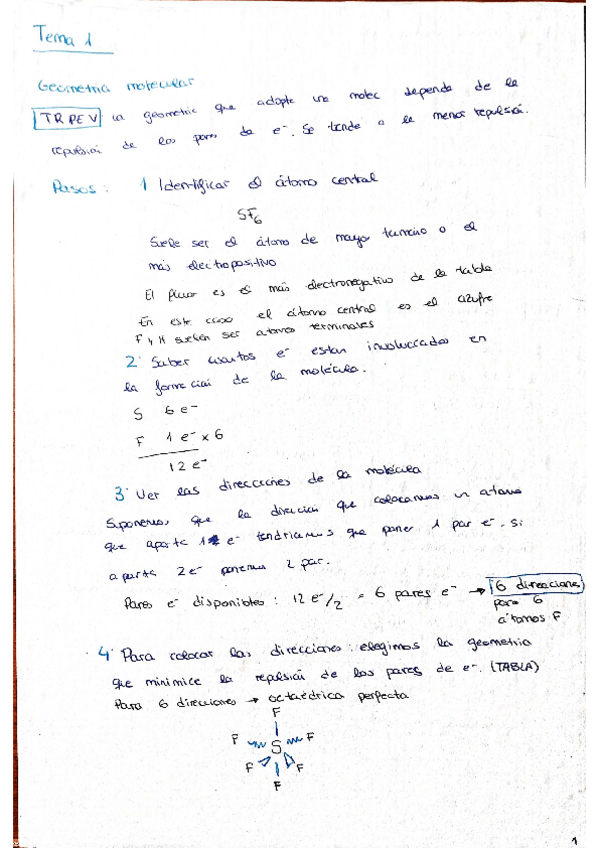 Tema 1
Geometria molecular
TRPEV la geometria que adopta una molec depende de la
repulsión de los pares de e-. Se tiende a la menor repulsión.
Pasos: 1 Identificar el átomo central
SF6
Suele ser el átomo de mayor tamaño o el
más electropositivo
El fluor es el más electronegativo de la tabla
En este caso el átomo central es el azufre
F y H suelen ser atomos terminales
2· Saber cuantos e- estan involucrados en
la formación de la molécula.
S 6 e-
F 1 e- x 6
12 e-
3· Ver las direcciones de la molécula
Suponemos que la dirección que colocamos un atomo
que aporta 1 e- tendriamos que poner 1 par e-. Si
aporta 2e- ponemos 2 par.
Pares e- disponibles: 12 e-/2 = 6 pares e- → 6 direcciones
para 6
átomos F
4· Para colocar las direcciones: elegimos la geometria
que minimice la repulsión de los pares de e-. (TABLA)
Para 6 direcciones → octaédrica perfecta
F
F S F
F F
F
1